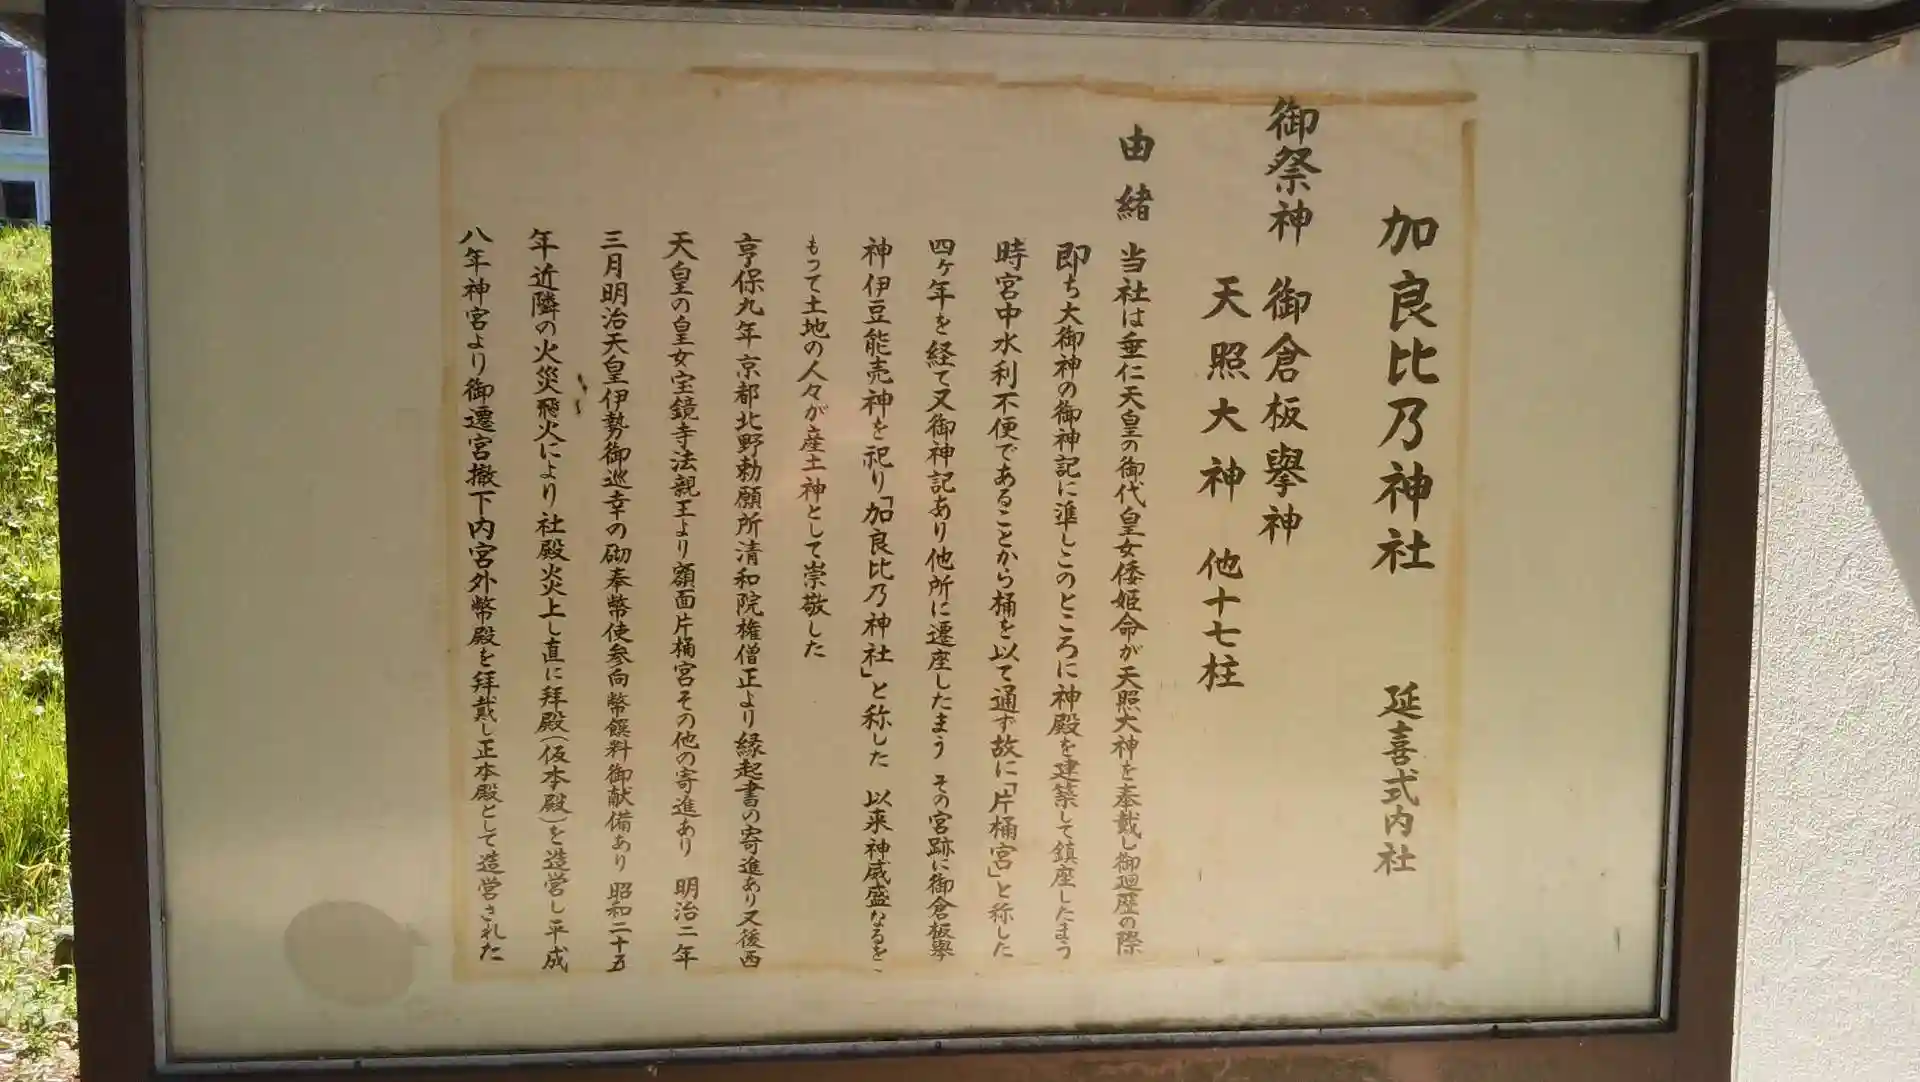 加良比乃神社 延喜式内社
御祭神 御倉板擧神
天照大神 他十七柱
由緒 当社は垂仁天皇の御代皇女倭姫命が天照大神を奉戴し御廻歴の際
即ち大御神の御神記に準しこのところに神殿を建築して鎮座したまう
時宮中水利不便であることから桶を以て通ず故に「片桶宮」と称した
四ヶ年を経て又御神記あり他所に遷座したまう その宮跡に御倉板擧
神伊豆能売神を祀り「加良比乃神社」と称した 以来神威盛なるを
もって土地の人々が産土神として崇敬した
亨保九年京都北野勅願所清和院権僧正より縁起書の寄進あり又後西
天皇の皇女宝鏡寺法親王より額面片桶宮その他の寄進あり 明治二年
三月明治天皇伊勢御巡幸の砌奉幣使参向幣饌料御献備あり 昭和二十五
年近隣の火災飛火により社殿炎上し直に拝殿(仮本殿)を造営し平成
八年神宮より御遷宮撤下内宮外幣殿を拝戴し正本殿として造営された